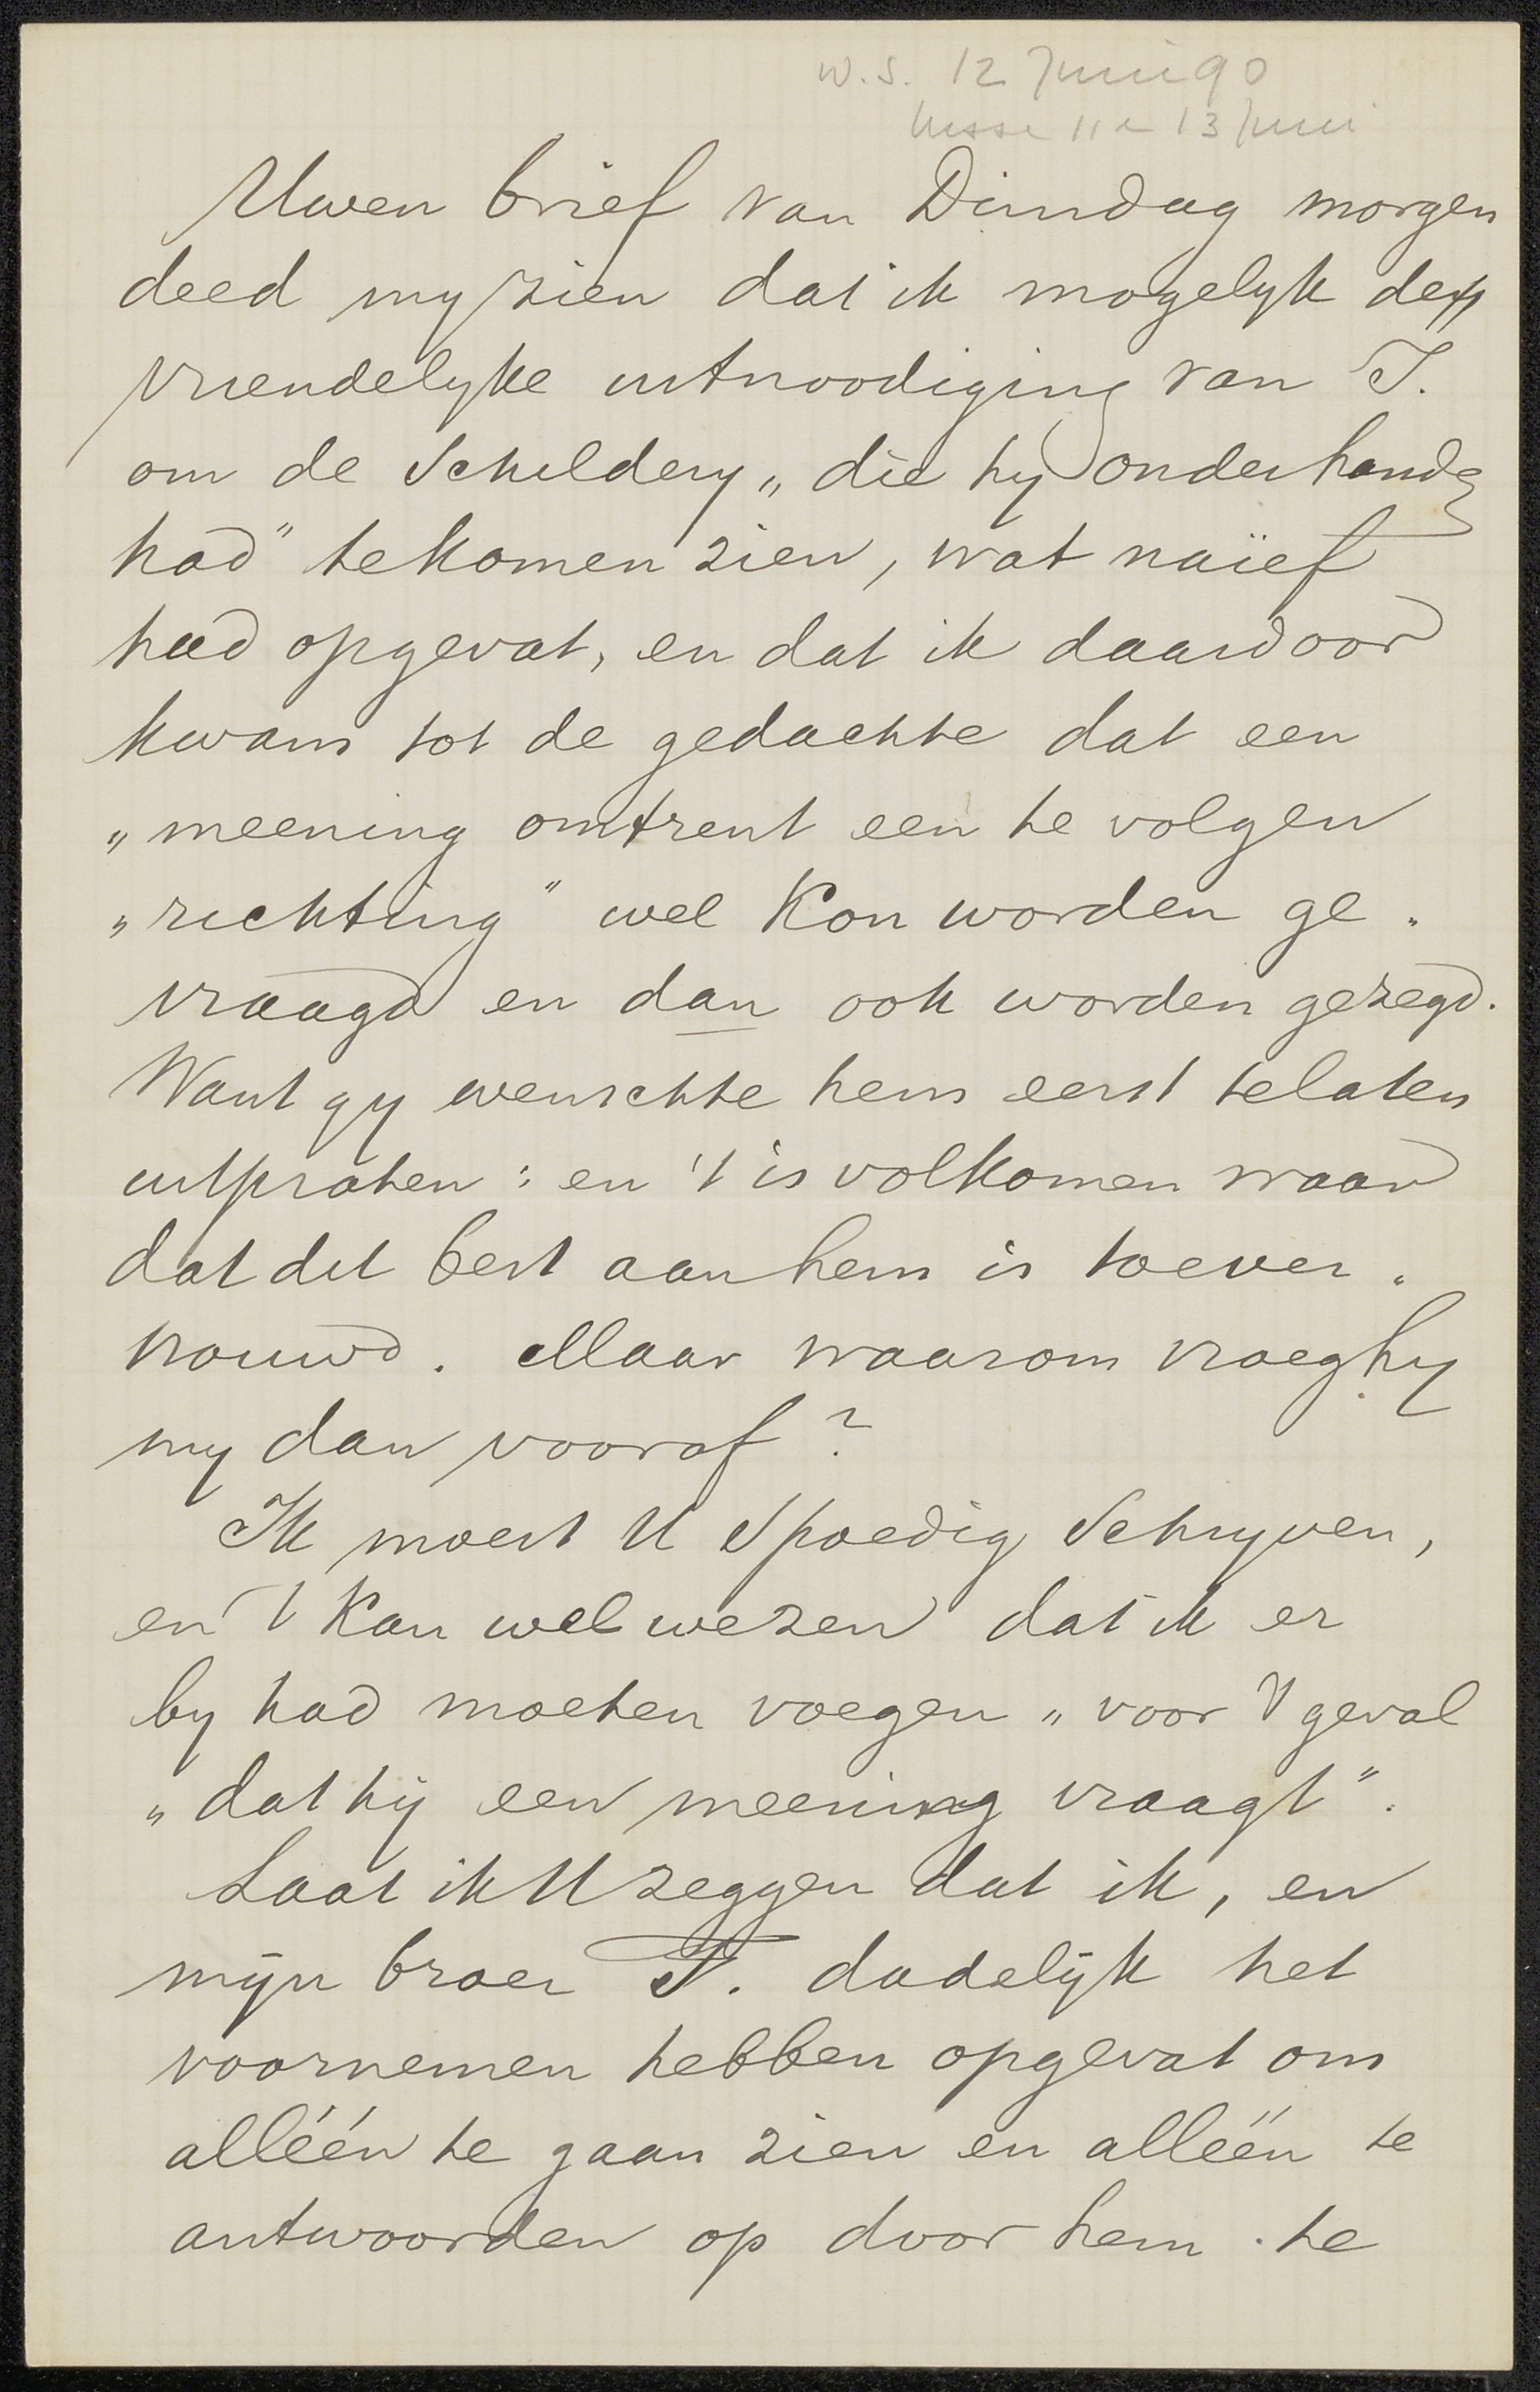 w.s. 12 Juni 90
tusse 11 e 13 Juni
Uwen brief van Dinsdag morgen
deed my zien dat ik mogelyk de
vriendelyke uitnoodiging van T.
om de Schildery „die hy onderhande
had” te komen zien, wat naïef
had opgevat, en dat ik daardoor
kwam tot de gedachte dat een
„meening omtrent een te volgen
„richting” wel kon worden ge„
vraagd en dan ook worden gezegd.
Want gy wenschte hem eerst telaten
uitpraten: en 't is volkomen waar
dat dit best aan hem is toever„
trouwd. Maar waarom vroeg hy
my dan vooraf?
Ik moest U Spoedig Schryven,
en 't kan wel wezen dat ik er
by had moeten voegen „voor 't geval
„dat hij een meening vraagt”.
Laat ik U zeggen dat ik, en
mijn broer T. dadelijk het
voornemen hebben opgevat om
alléén te gaan zien en alléén te
antwoorden op door hem te